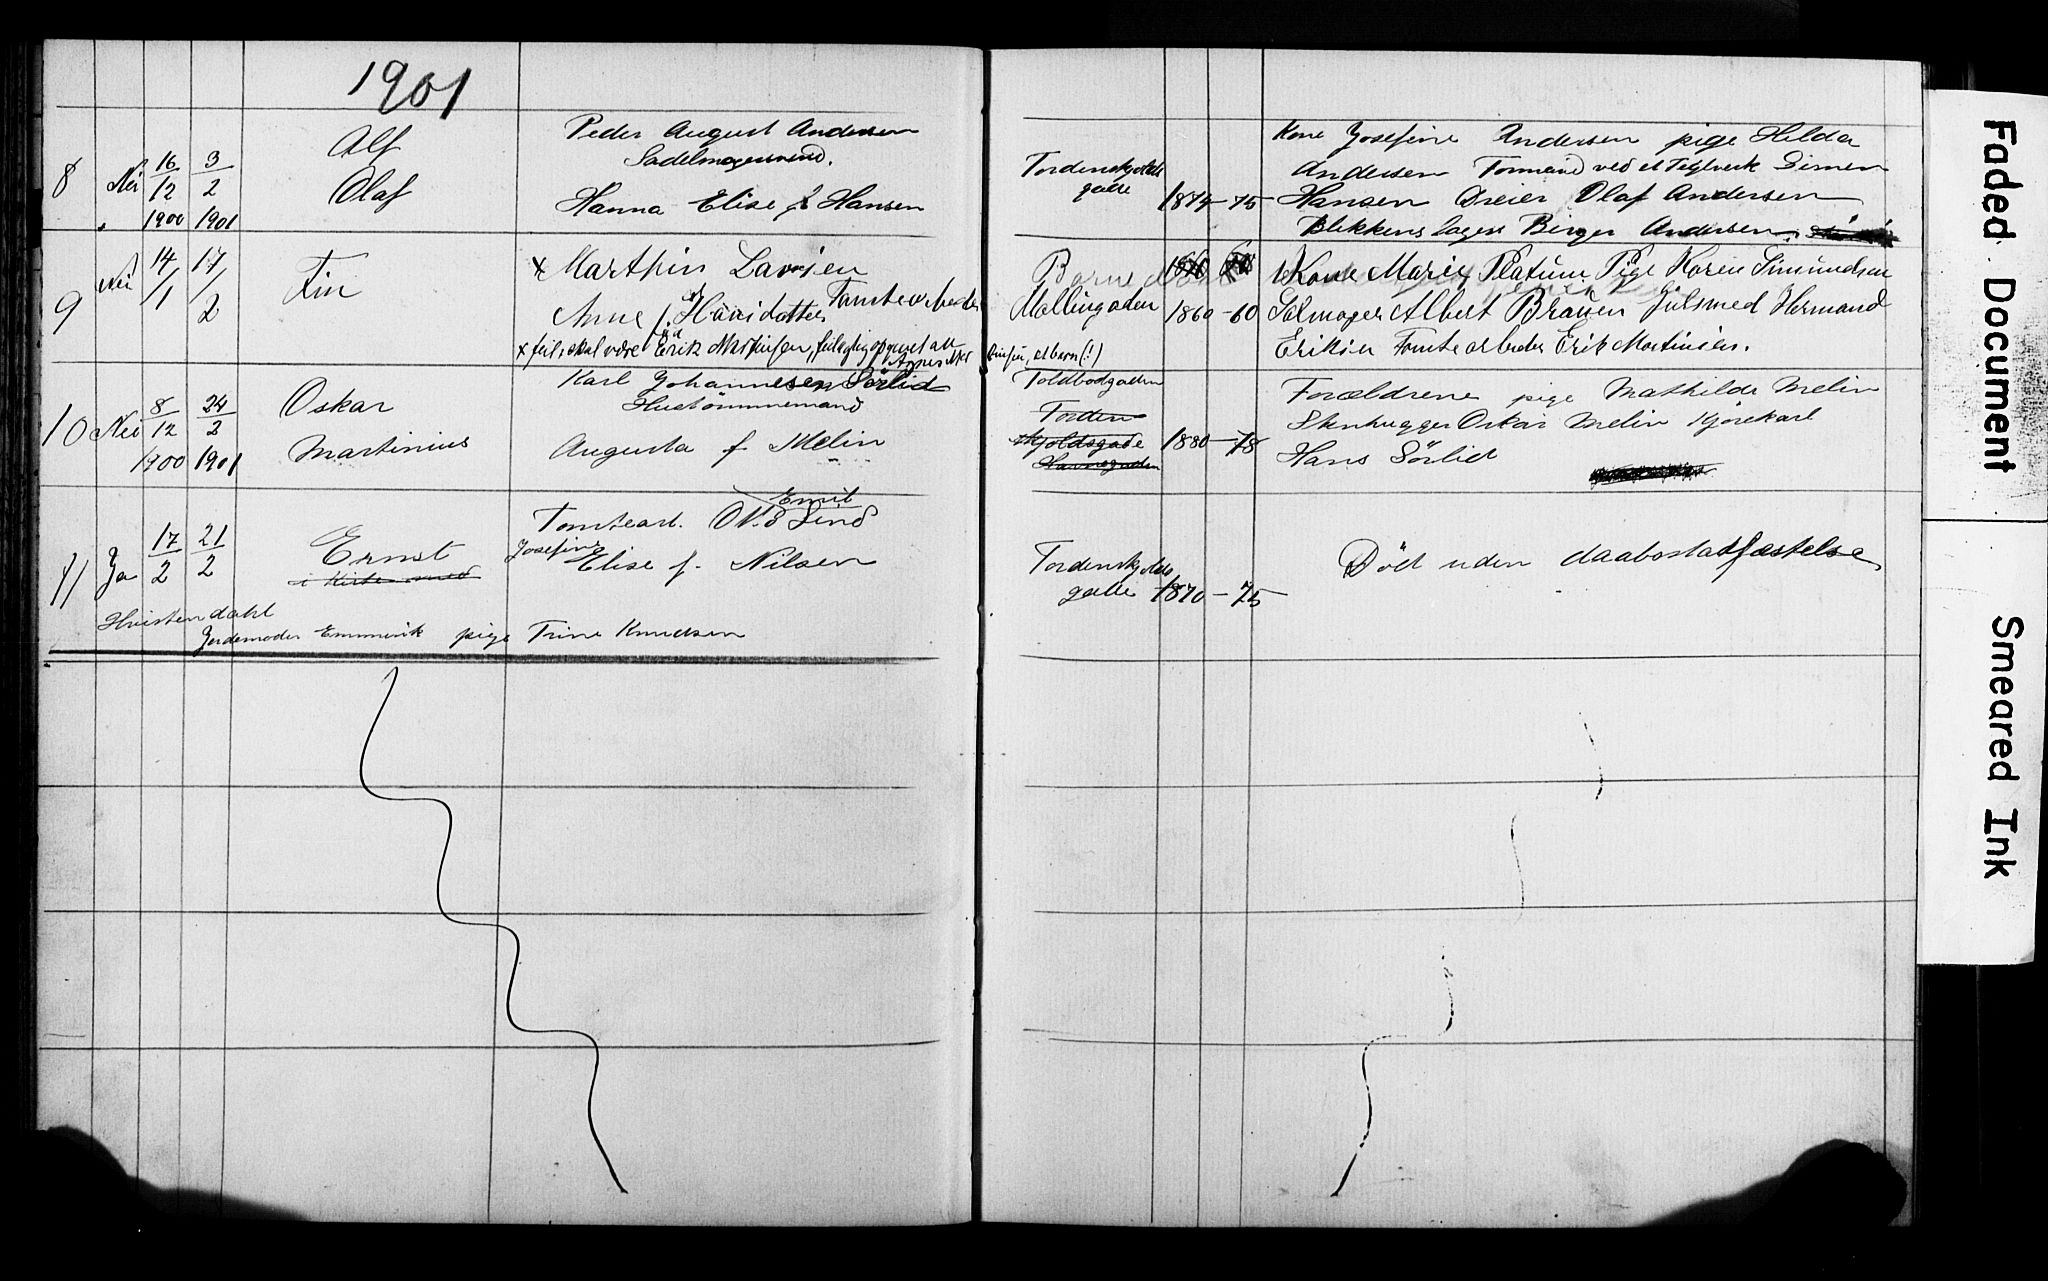 1901
8 Nei 16/12 1900 3/2 1901
Alf
Olaf
Peder August Andersen
Sadelmagersvend.
Hanna Elise f Hansen
Tordenskjolds
gade
1874-75
Kone Josefine Andersen pige Hilda
Andersen Formand ved et Teglverk Simen
Hansen Dreier Olaf Andersen
Blikkenslager Birger Andersen
9 Nei 14/1 17/2
Fin
x Marthin Larsen
Anne f. Hansdatter Tomtearbeider
x feil, skal være Erik Martinsen, feilagtig opgivet at
Mellingaden
1860-60
Kone Marie Platum Pige Karen Simundsen
Salmager Albert Braaen Gulsmed Hermand
Eriksen Tomtearbeder Erik Martinsen.
10 Nei 8/12 1900 24/2 1901
Oskar
Martinius
Karl Johannesen Sörlid
Hustömmermand
Augusta f Melin
Toldbodgaden
Torden
skjoldsgade
Havnegaden
1880-78
Forældrene pige Mathilde Melin
Stenhugger Oskar Melin Kjörekarl
Hans Sörlid
11 Ja 17/2 21/2
Ernst
i Kirken med
Emil
Tomtearb. O.E Lind
Josefine
Elise f. Nilsen
Tordenskjolds
gade
1870-75
Död uden daabsstadfæstelse
Hvistendahl
Jordemoder Emmerik pige Trine Knudsen
Faded Document
Smeared Ink